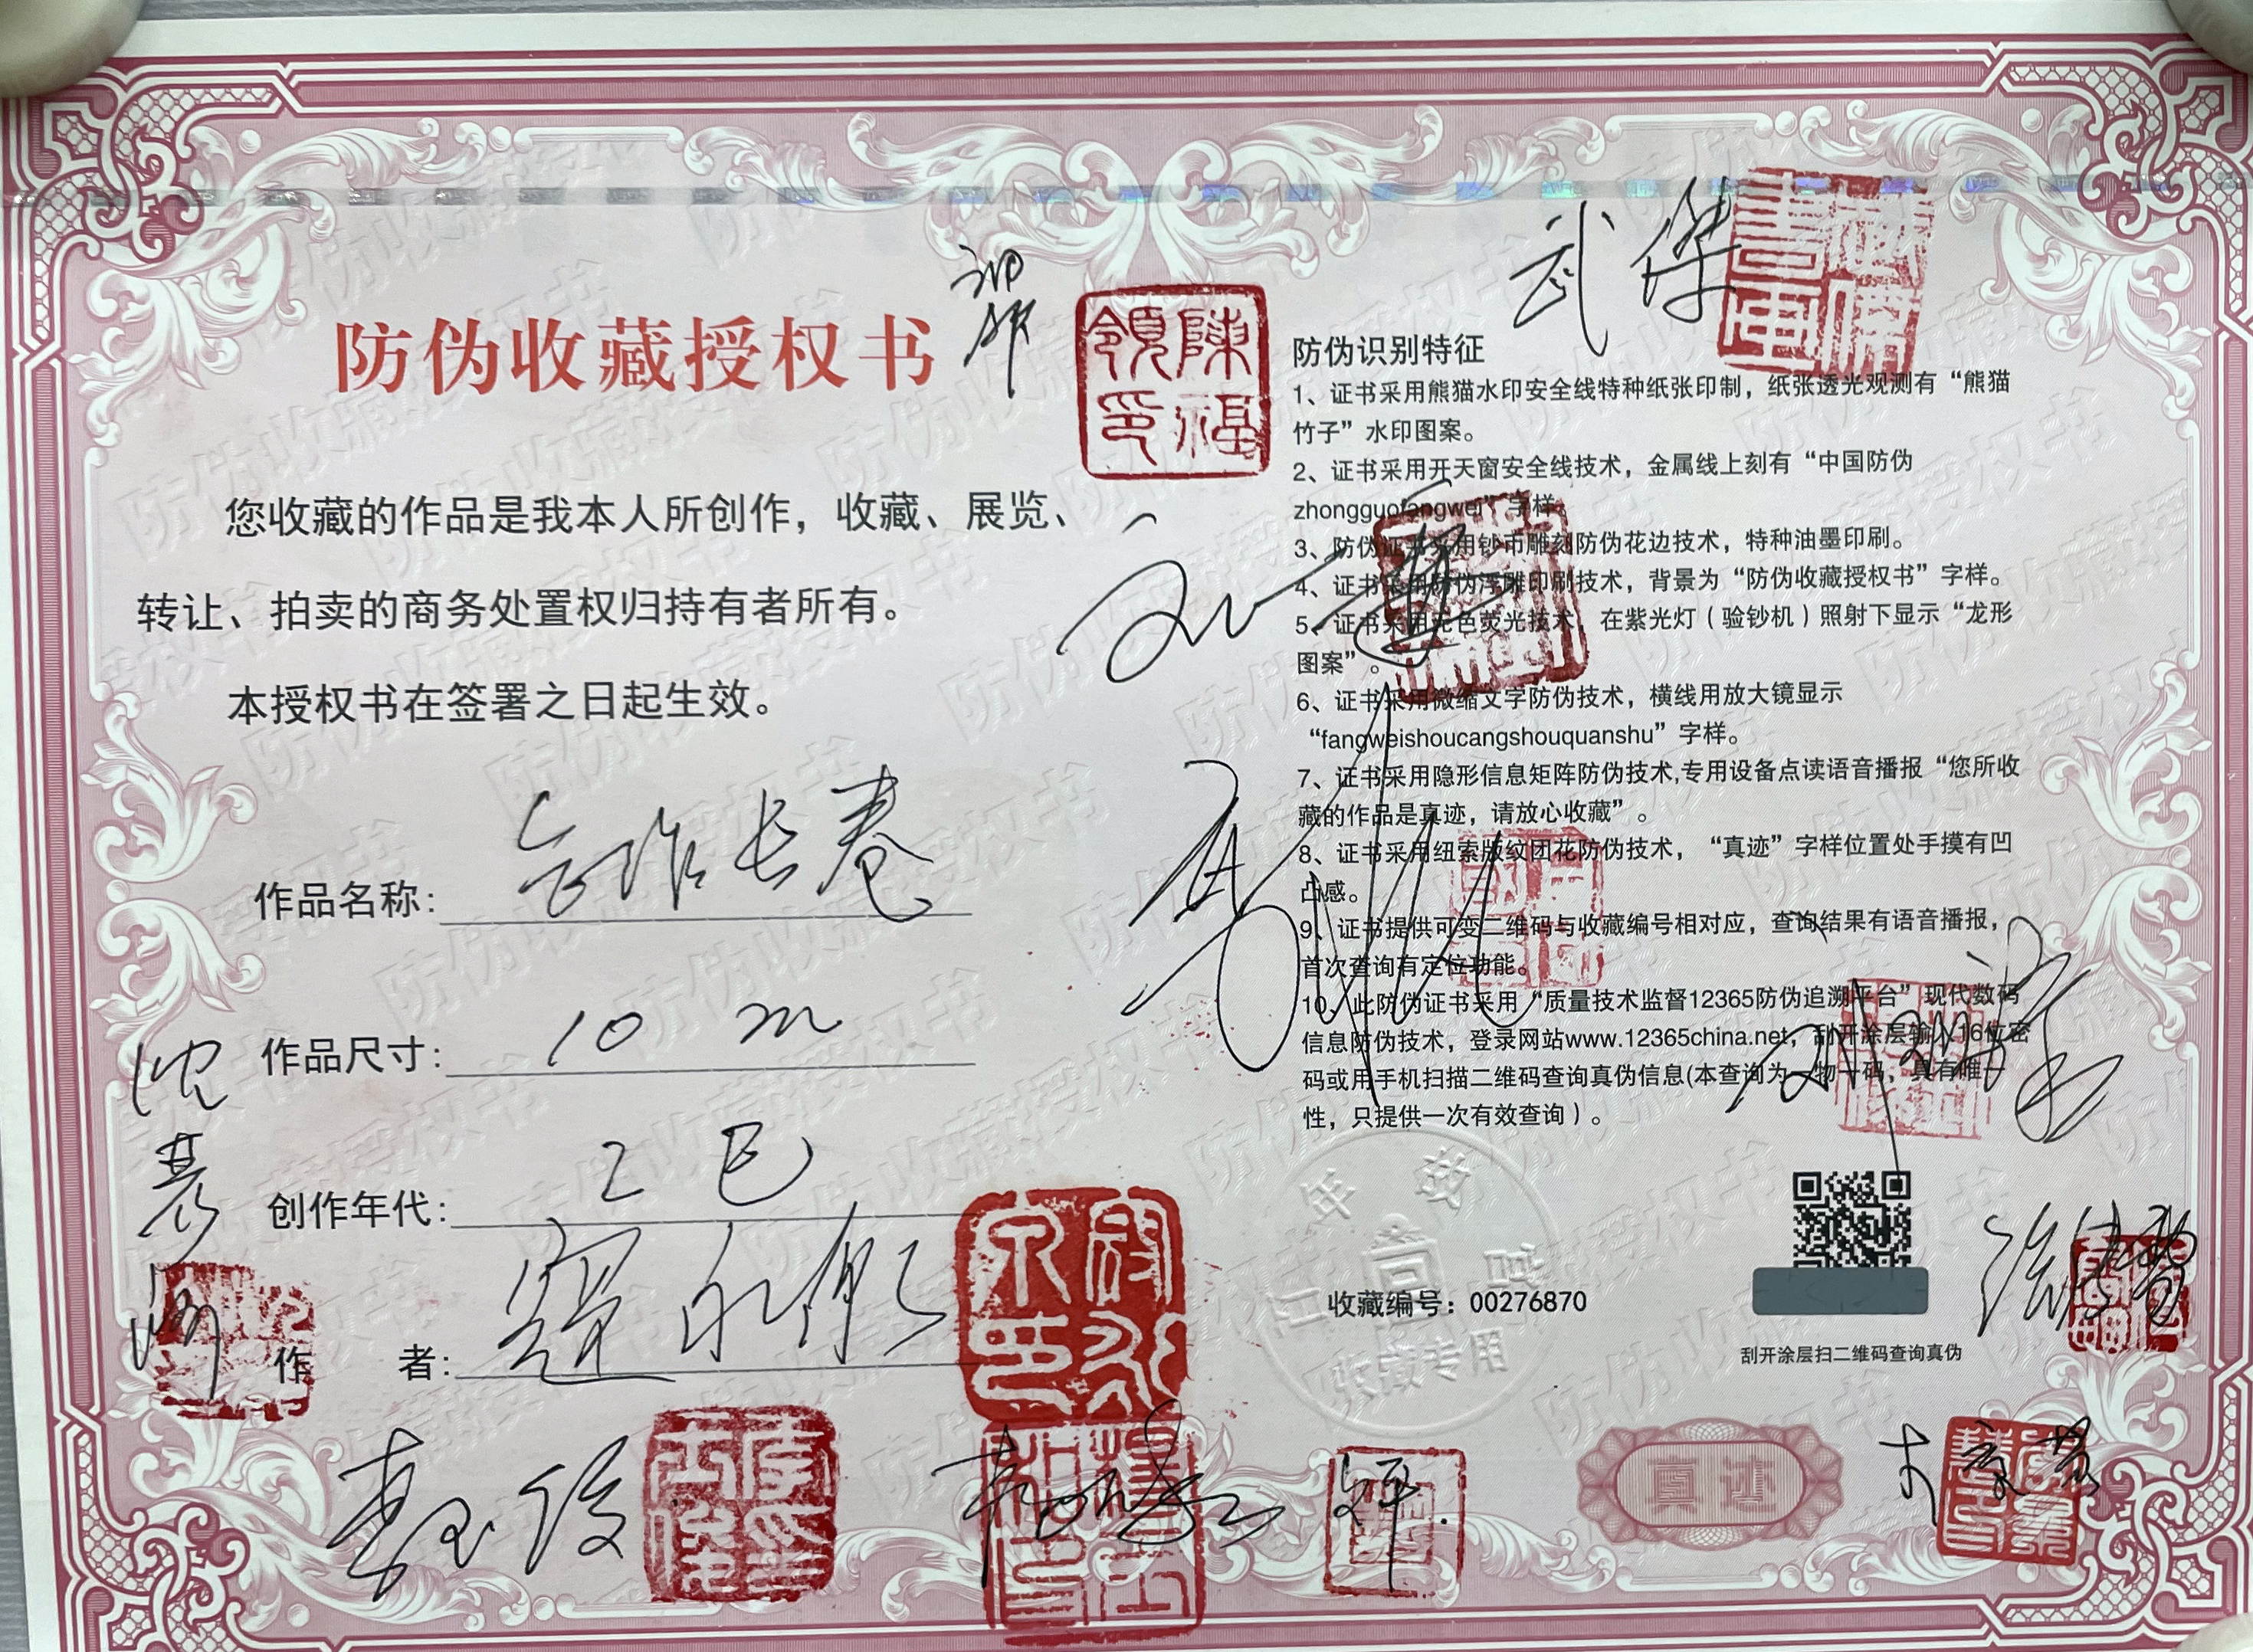 防伪收藏授权书
您收藏的作品是我本人所创作，收藏、展览、
转让、拍卖的商务处置权归持有者所有。
本授权书在签署之日起生效。
作品名称：合作长卷
作品尺寸：10 m
创作年代：乙巳
作 者：寇永
沈
陳福
領印
武傑
防伪识别特征
1、证书采用熊猫水印安全线特种纸张印制，纸张透光观测有“熊猫
竹子”水印图案。
2、证书采用开天窗安全线技术，金属线上刻有“中国防伪
zhongguofangwei”字样。
3、防伪证书采用钞币雕刻防伪花边技术，特种油墨印刷。
4、证书采用防伪浮雕印刷技术，背景为“防伪收藏授权书”字样。
5、证书采用无色荧光技术，在紫光灯（验钞机）照射下显示“龙形
图案”。
6、证书采用微缩文字防伪技术，横线用放大镜显示
“fangweishoucangshouquanshu”字样。
7、证书采用隐形信息矩阵防伪技术,专用设备点读语音播报“您所收
藏的作品是真迹，请放心收藏”。
8、证书采用纽索版纹团花防伪技术，“真迹”字样位置处手摸有凹
凸感。
9、证书提供可变二维码与收藏编号相对应，查询结果有语音播报，
首次查询有定位功能。
10、此防伪证书采用“质量技术监督12365防伪追溯平台”现代数码
信息防伪技术，登录网站www.12365china.net，刮开涂层输入16位密
码或用手机扫描二维码查询真伪信息(本查询为一物一码，具有唯一
性，只提供一次有效查询）。
收藏编号：00276870
收藏专用
刮开涂层扫二维码查询真伪
真迹